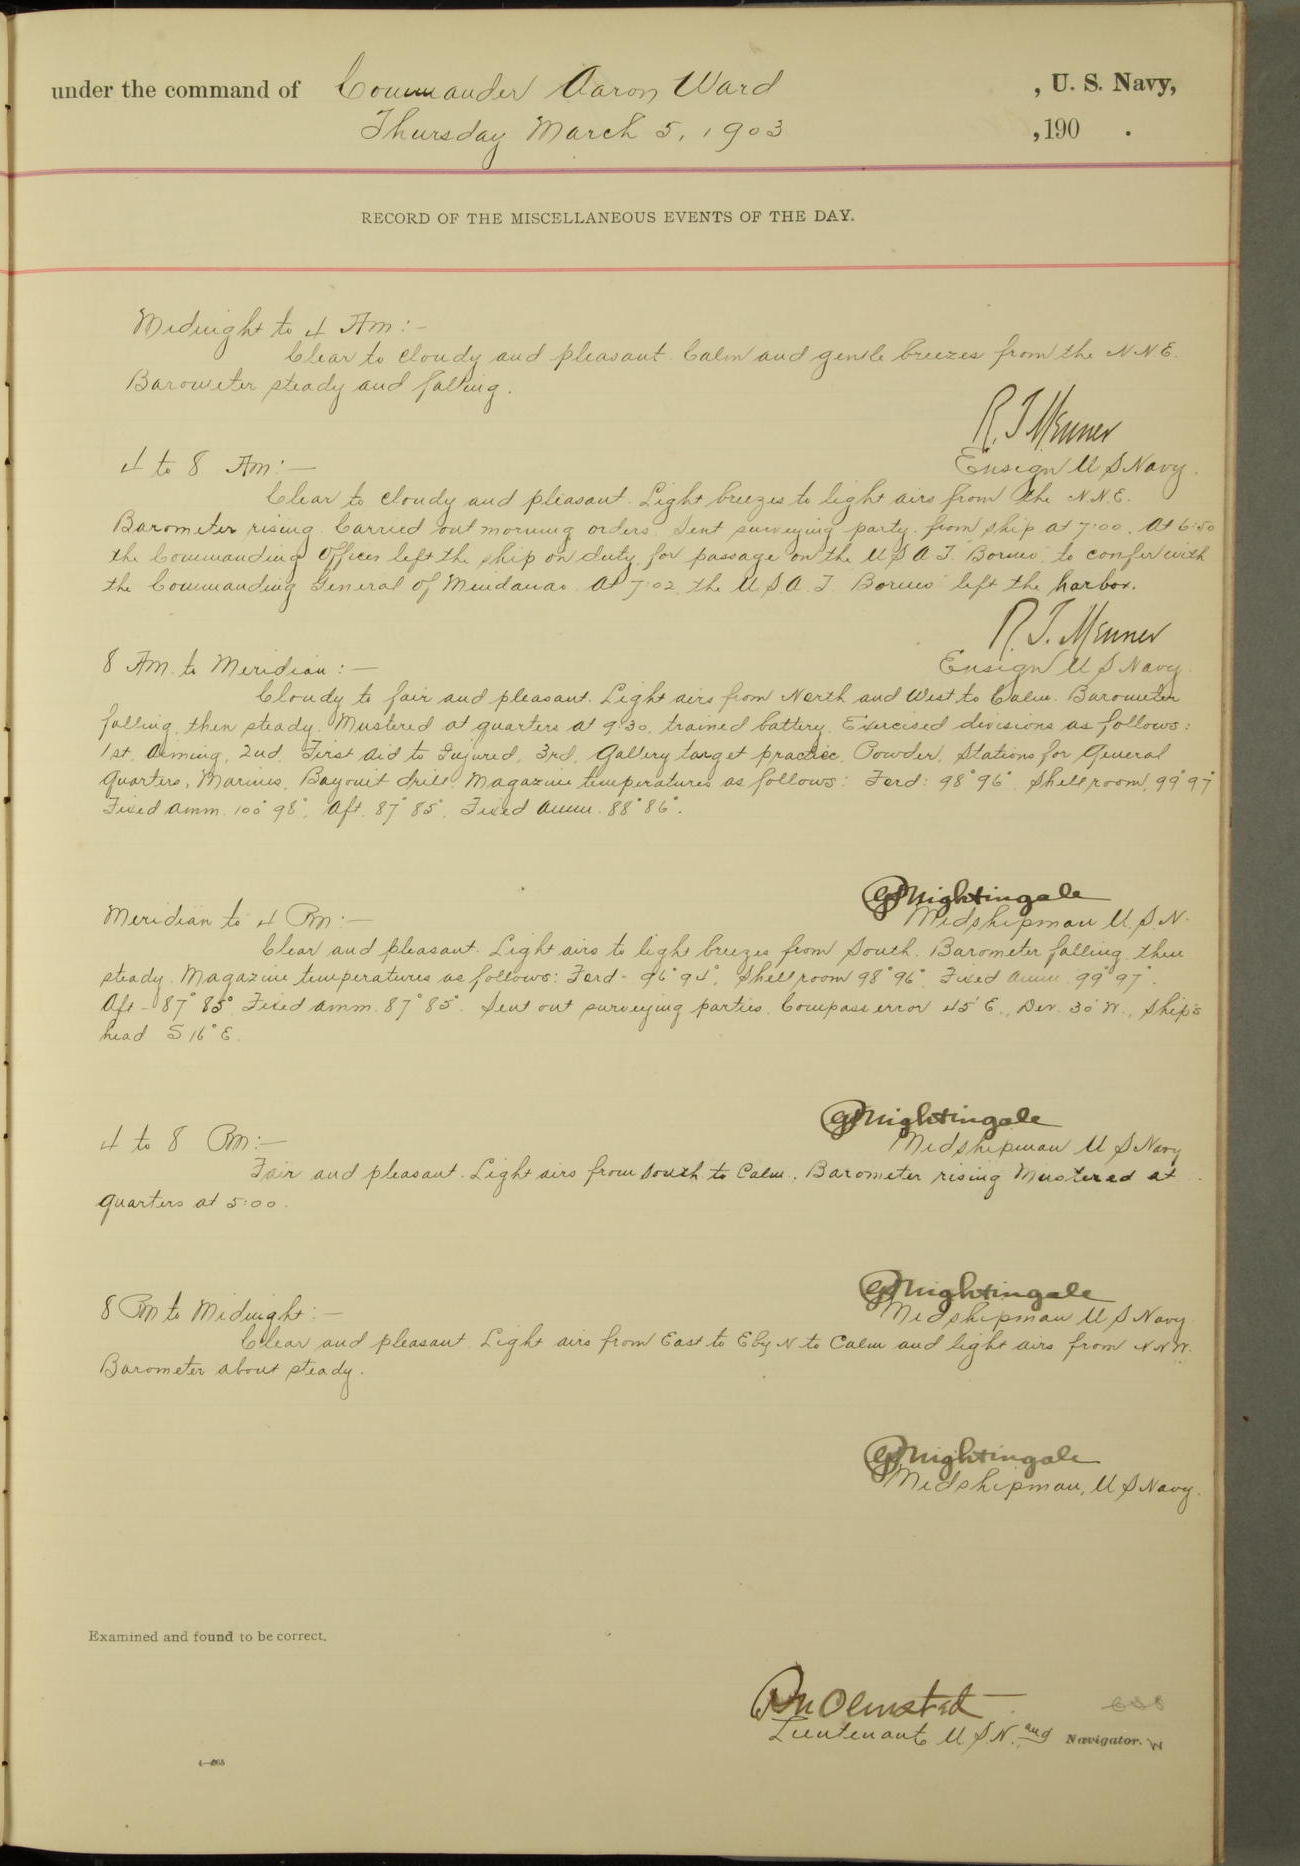 under the command of Commander Aaron Ward , U. S. Navy,
Thursday March 5, 1903 , 190 .
RECORD OF THE MISCELLANEOUS EVENTS OF THE DAY.
Midnight to 4 Am:-
Clear to cloudy and pleasant. Calm and gentle breezes from the N.N.E.
Barometer steady and falling.
R. T. Menner
Ensign U S Navy.
4 to 8 Am:-
Clear to cloudy and pleasant. Light breezes to light airs from the N.N.E.
Barometer rising. Carried out morning orders. Sent surveying party from ship at 7:00. At 6:50
the Commanding Officer left the ship on duty for passage on the U S A T. Borneo to confer with
the Commanding General of Mindanao. At 7:02 the U.S.A.T. Borneo left the harbor.
R. T. Menner
Ensign U S Navy.
8 Am. to Meridian:-
Cloudy to fair and pleasant. Light airs from North and West to Calm. Barometer
falling, then steady. Mustered at quarters at 9:30, trained battery. Exercised divisions as follows:
1st. Aiming, 2nd. First Aid to Injured, 3rd. Gallery target practice, Powder, Stations for General
Quarters, Marines, Bayonit drill. Magazine temperatures as follows: Ford: 98° 96°, Shell room, 99° 97°
Fixed amm. 100° 98°, Aft. 87° 85°, Fixed Amm. 88° 86°.
Nightingale
Midshipman U.S.N.
Meridian to 4 Pm:-
Clear and pleasant. Light airs to light breezes from South. Barometer falling, then
steady. Magazine temperatures as follows: Ford - 96° 94°, Shell room 98° 96°, Fixed amm. 99° 97°.
Aft - 87° 85°, Fixed amm. 87° 85°. Sent out surveying parties. Compass error 45' E., Dev. 30' W., Ship's
head S 16° E.
Nightingale
Midshipman U S Navy
4 to 8 Pm:-
Fair and pleasant. Light airs from South to Calm. Barometer rising Mustered at
quarters at 5:00.
Nightingale
Midshipman U S Navy
8 Pm to Midnight:-
Clear and pleasant. Light airs from East to E by N to Calm and light airs from N N W.
Barometer about steady.
Nightingale
Midshipman, U S Navy.
Examined and found to be correct.
Olmsted
Lieutenant U.S.N. and Navigator.